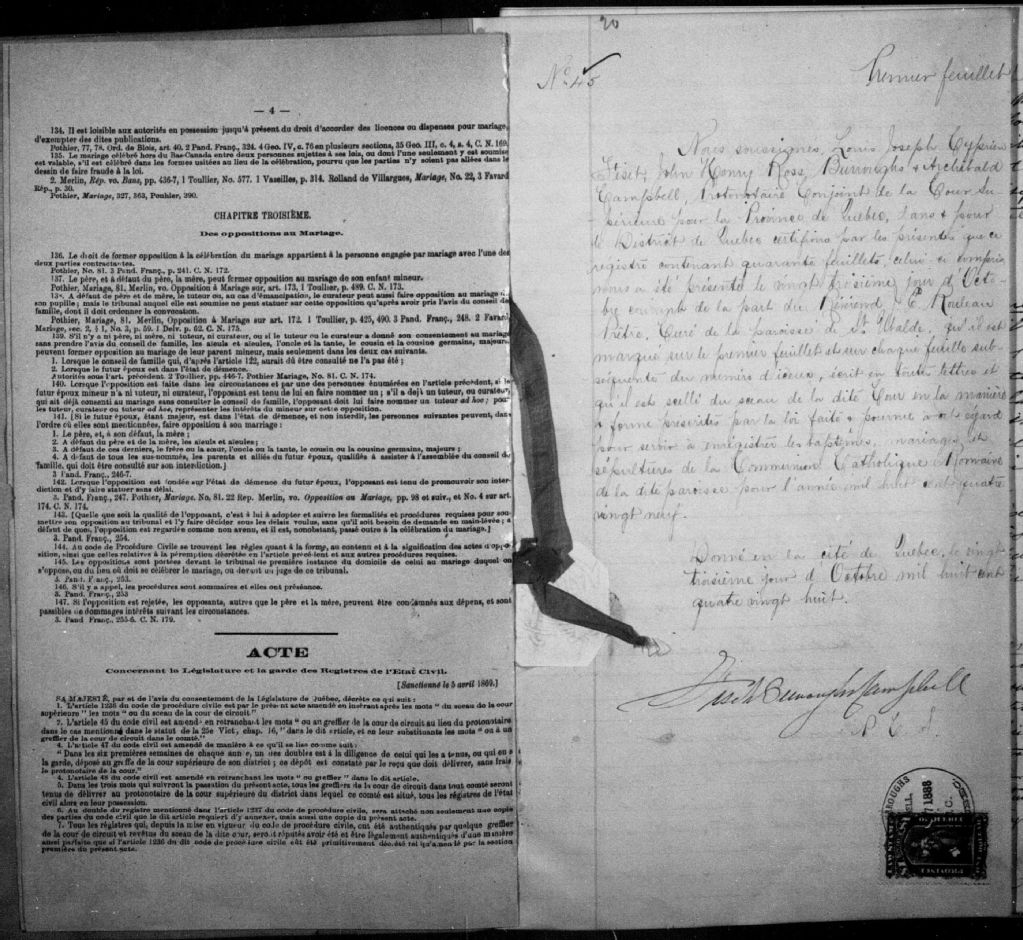 — 4 —
134. Il est loisible aux autorités en possession jusqu'à présent du droit d'accorder des licences ou dispenses pour mariage,
d'exempter des dites publications.
Pothier, 77, 78. Ord. de Blois, art. 40. 2 Pand. Franç., 324. 4 Geo. IV, c. 76 en plusieurs sections, 35 Geo. III, c. 4, s. 4, C. N. 169.
135. Le mariage célébré hors du Bas-Canada entre deux personnes sujettes à ses lois, ou dont l'une seulement y est soumise
est valable, s'il est célébré dans les formes usitées au lieu de la célébration, pourvu que les parties n'y soient pas allées dans le
dessein de faire fraude à la loi.
2. Merlin, Rép. vo. Bans, pp. 436-7, 1 Toullier, No. 577. 1 Vazeilles, p. 314. Rolland de Villargues, Mariage, No. 22, 3 Favard
Rép., p. 30.
Pothier, Mariage, 327, 363, Pouhier, 390.
CHAPITRE TROISIÈME.
Des oppositions au Mariage.
136. Le droit de former opposition à la célébration du mariage appartient à la personne engagée par mariage avec l'une des
deux parties contractantes.
Pothier, No. 81. 3 Pand. Franç., p. 241. C. N. 172.
137. Le père, et à défaut du père, la mère, peut former opposition au mariage de son enfant mineur.
Pothier, Mariage, 81. Merlin, vo. Opposition à Mariage sur, art. 173, 1 Toullier, p. 489. C. N. 173.
138. A défaut de père et de mère, le tuteur ou, au cas d'émancipation, le curateur peut aussi faire opposition au mariage de
son pupille; mais le tribunal auquel elle est soumise ne peut statuer sur cette opposition qu'après avoir pris l'avis du conseil de
famille, dont il doit ordonner la convocation.
Pothier, Mariage, 81, Merlin, Opposition à Mariage sur art. 172. 1 Toullier, p. 425, 490. 3 Pand. Franç., 248. 2 Favard
Mariage, sec. 2, § 1, No. 3, p. 59. 1 Delv. p. 62. C. N. 175.
139. S'il n'y a ni père, ni mère, ni tuteur, ni curateur, ou si le tuteur ou le curateur a donné son consentement au mariage
sans prendre l'avis du conseil de famille, les aïeuls et aïeules, l'oncle et la tante, le cousin et la cousine germains, majeurs
peuvent former opposition au mariage de leur parent mineur, mais seulement dans les deux cas suivants.
1. Lorsque le conseil de famille qui, d'après l'article 122, aurait dû être consulté ne l'a pas été;
2. Lorsque le futur époux est dans l'état de démence.
Autorités sous l'art. précédent. 2 Toullier, pp. 446-7. Pothier Mariage, No. 81. C. N. 174.
140. Lorsque l'opposition est faite dans les circonstances et par une des personnes énumérées en l'article précédent, si le
futur époux mineur n'a ni tuteur, ni curateur, l'opposant est tenu de lui en faire nommer un; s'il a déjà un tuteur, ou curateur,
qui ait déjà consenti au mariage sans consulter le conseil de famille, l'opposant doit lui faire nommer un tuteur ad hoc; pour
les tuteur, curateur ou tuteur ad hoc, représenter les intérêts du mineur sur cette opposition.
141. [Si le futur époux, étant majeur, est dans l'état de démence, et non interdit, les personnes suivantes peuvent, dans
l'ordre où elles sont mentionnées, faire opposition à son mariage:
1. Le père, et, à son défaut, la mère;
2. A défaut du père et de la mère, les aïeuls et aïeules;
3. A défaut de ces derniers, le frère ou la sœur, l'oncle ou la tante, le cousin ou la cousine germains, majeurs;
4. A défaut de tous les sus-nommés, les parents et alliés du futur époux, qualifiés à assister à l'assemblée du conseil de
famille, qui doit être consulté sur son interdiction.]
3 Pand. Franç., 246-7.
142. Lorsque l'opposition est fondée sur l'état de démence du futur époux, l'opposant est tenu de promouvoir son inter-
diction et d'y faire statuer sans délai.
3. Pand. Franç., 247. Pothier, Mariage. No. 81. 22 Rep. Merlin, vo. Opposition au Mariage, pp. 98 et suiv., et No. 4 sur art.
174. C. N. 174.
143. [Quelle que soit la qualité de l'opposant, c'est à lui à adopter et suivre les formalités et procédures requises pour sou-
mettre son opposition au tribunal et l'y faire décider sous les délais voulus, sans qu'il soit besoin de demande en main-levée; à
défaut de quoi, l'opposition est regardée comme non avenu, et il est, nonobstant, passé outre à la célébration du mariage.]
3. Pand. Franç., 254.
144. Au code de Procédure Civile se trouvent les règles quant à la forme, au contenu et à la signification des actes d'oppo-
sition, ainsi que celles relatives à la péremption décrétée en l'article précédent et aux autres procédures requises.
145. Les oppositions sont portées devant le tribunal de première instance du domicile de celui au mariage duquel on
s'oppose, ou du lieu où doit se célébrer le mariage, ou devant un juge de ce tribunal.
3. Pand. Franç., 253.
146. S'il y a appel, les procédures sont sommaires et elles ont préséance.
3. Pand. Franç., 253
147. Si l'opposition est rejetée, les opposants, autres que le père et la mère, peuvent être condamnés aux dépens, et sont
passibles de dommages intérêts suivant les circonstances.
3. Pand Franç., 255-6. C. N. 179.
ACTE
Concernant la Législature et la garde des Registres de l'Etat Civil.
[Sanctionné le 5 avril 1869.]
SA MAJESTÉ, par et de l'avis du consentement de la Législature de Québec, décrète ce qui suit:
1. L'article 1236 du code de procédure civile est par le présent acte amendé en insérant après les mots "du sceau de la cour
supérieure" les mots "ou du sceau de la cour de circuit."
2. L'article 45 du code civil est amendé en retranchant les mots "ou au greffier de la cour de circuit au lieu du protonotaire
dans le cas mentionné dans le statut de la 25e Vict, chap. 16," dans le dit article, et en leur substituant les mots "ou à un
greffier de la cour de circuit dans le comté."
4. L'article 47 du code civil est amendé de manière à ce qu'il se lise comme suit:
"Dans les six premières semaines de chaque année, un des doubles est à la diligence de celui qui les a tenus, ou qui en a
la garde, déposé au greffe de la cour supérieure de son district; ce dépôt est constaté par le reçu que doit délivrer, sans frais
le protonotaire de la cour."
4. L'article 48 du code civil est amendé en retranchant les mots "ou greffier" dans le dit article.
5. Dans les trois mois qui suivront la passation du présent acte, tous les greffiers de la cour de circuit dans tout comté seront
tenus de délivrer au protonotaire de la cour supérieure du district dans lequel ce comté est situé, tous les régistres de l'état
civil alors en leur possession.
6. Au double du registre mentionné dans l'article 1237 du code de procédure civile, sera attaché non seulement une copie
des parties du code civil que le dit article requiert d'y annexer, mais aussi une copie du présent acte.
7. Tous les régistres qui, depuis la mise en vigueur du code de procédure civile, ont été authentiqués par quelque greffier
de la cour de circuit et revêtus du sceau de la dite cour, seront réputés avoir été et être légalement authentiqués d'une manière
aussi parfaite que si l'article 1236 du dit code de procédure civile eût été primitivement décrété tel qu'amendé par la section
première du présent acte.
20
No. 45
Premier feuillet
Nous soussignés, Louis Joseph Cyprien
Fiset, John Henry Ross, Burroughs & Archibald
Campbell, Protonotaire Conjoint de la Cour Su-
périeure pour la Province de Québec, dans & pour
le District de Québec certifions par les présentes que ce
régistre contenant quarante feuillets celui ci compris
nous a été présenté le vingt troisième jour d'Octo-
bre courant de la part du Révérend E. Rouleau
Prêtre, Curé de la paroisse de St. Ubalde, qu'il est
marqué sur le premier feuillet et sur chaque feuillet sub-
séquents du numéro d'iceux, écrit en toutes lettres et
qu'il est scellé du sceau de la dite Cour en la manière
& forme prescrites par la loi faite & pourvue à cet égard
pour servir à enregistrer les baptêmes, mariages et
sépultures de la Communion Catholique & Romaine
de la dite paroisse pour l'année mil huit cent quatre
vingt neuf.
Donné en la cité de Québec, le vingt
troisième jour d'Octobre mil huit cent
quatre vingt huit.
Fiset Burroughs Campbell
P. C. S.
BURROUGHS
1888